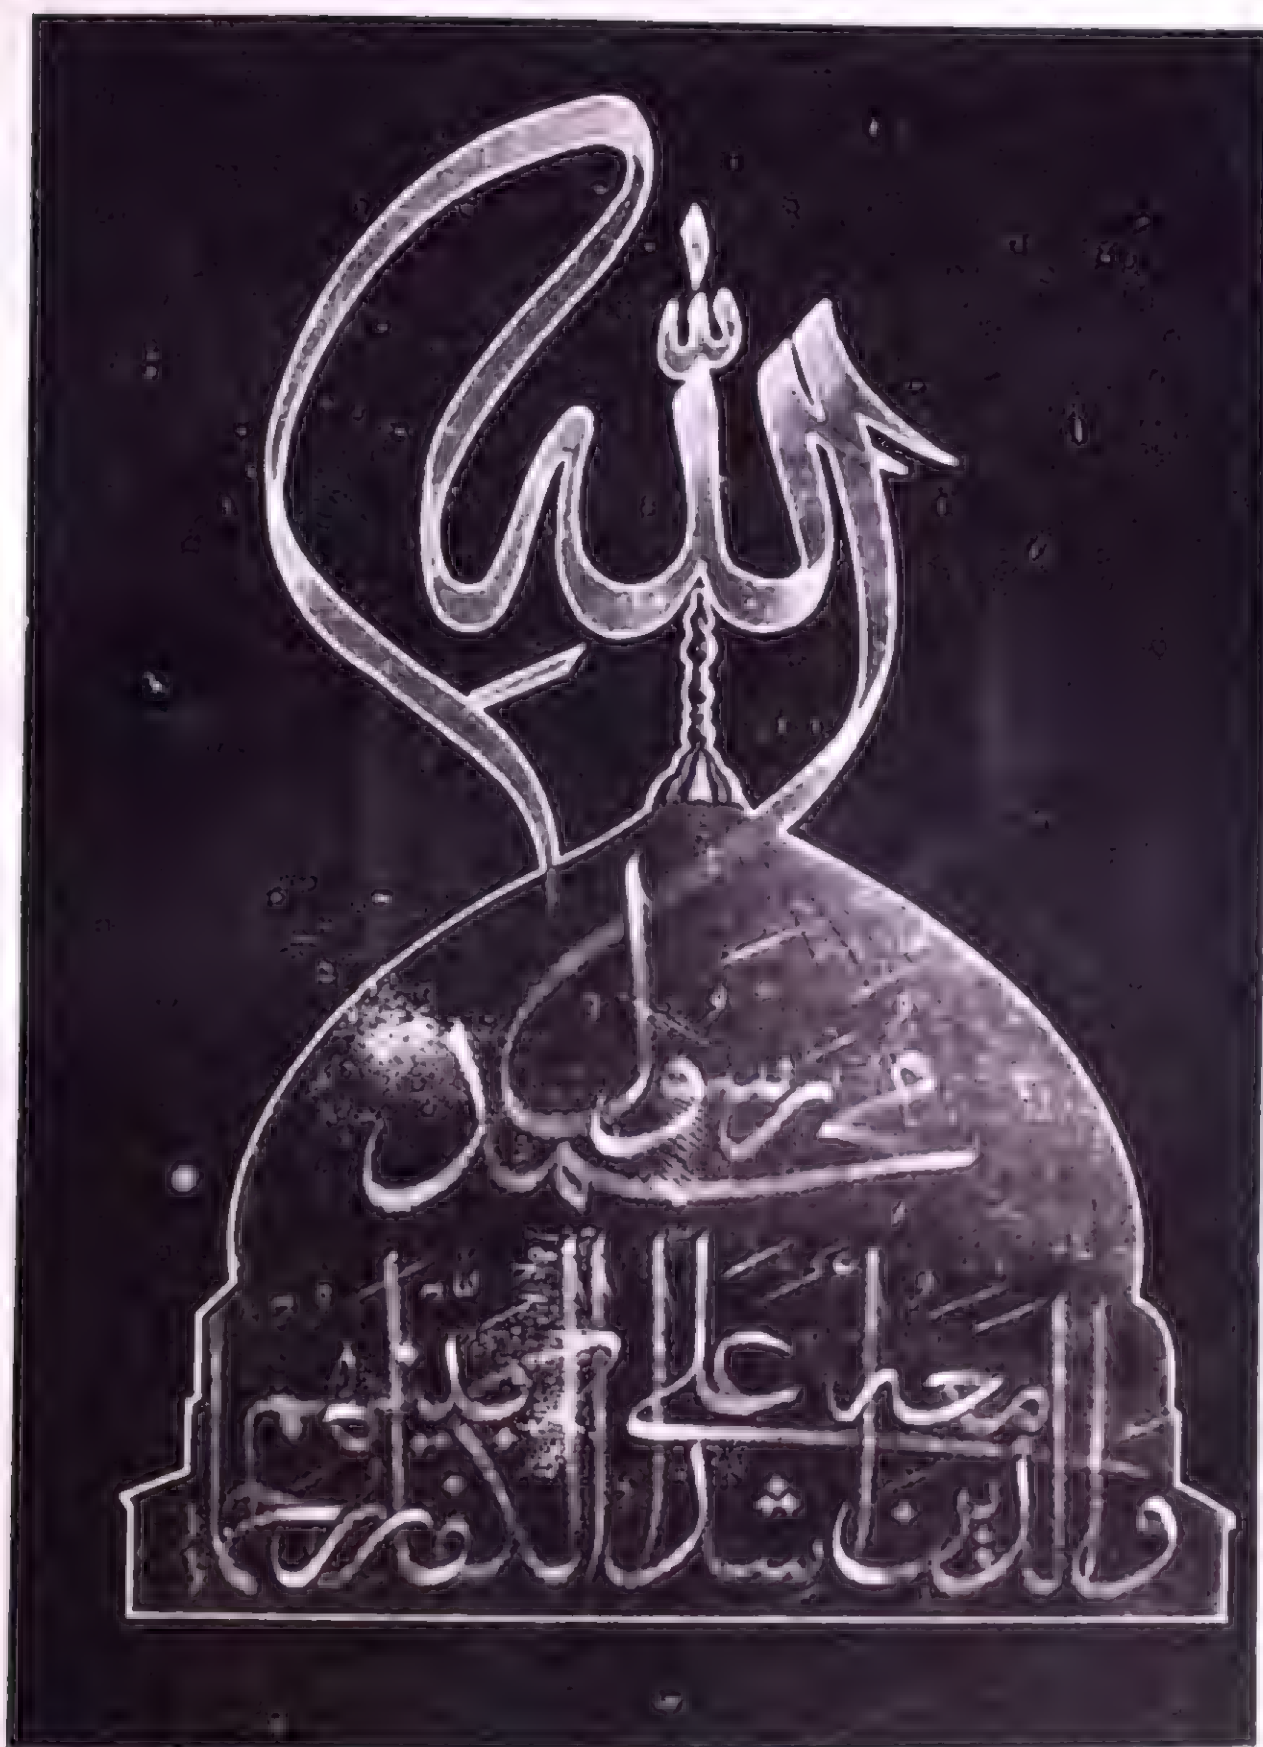 الله
محمد رسول
والذين معه اشداء على الكفار رحماء بينهم